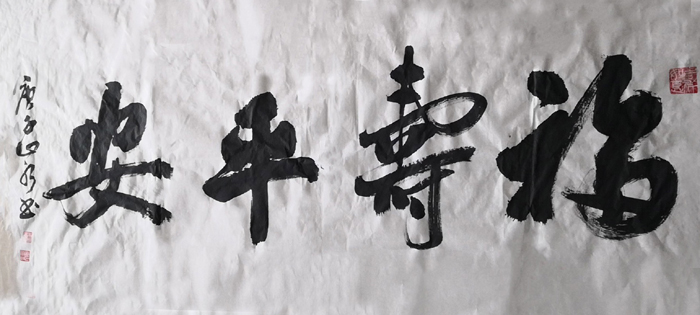 福寿平安
庚子山水书